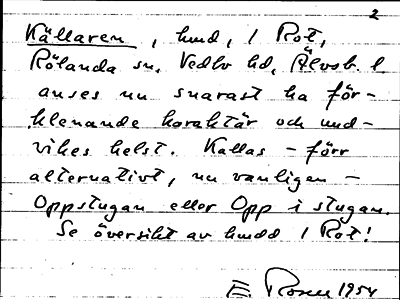 2
Källaren, hmd, / Rot,
Rölanda sn. Vedbo hd, Älvsb. l
anses nu snarast ha för-
klenande karaktär och und-
vikes helst. Kallas - förr
alternativt, nu vanligen -
Oppstugan eller Opp i stugan.
Se översikt av hmdd / Rot!
E Rosell 1954